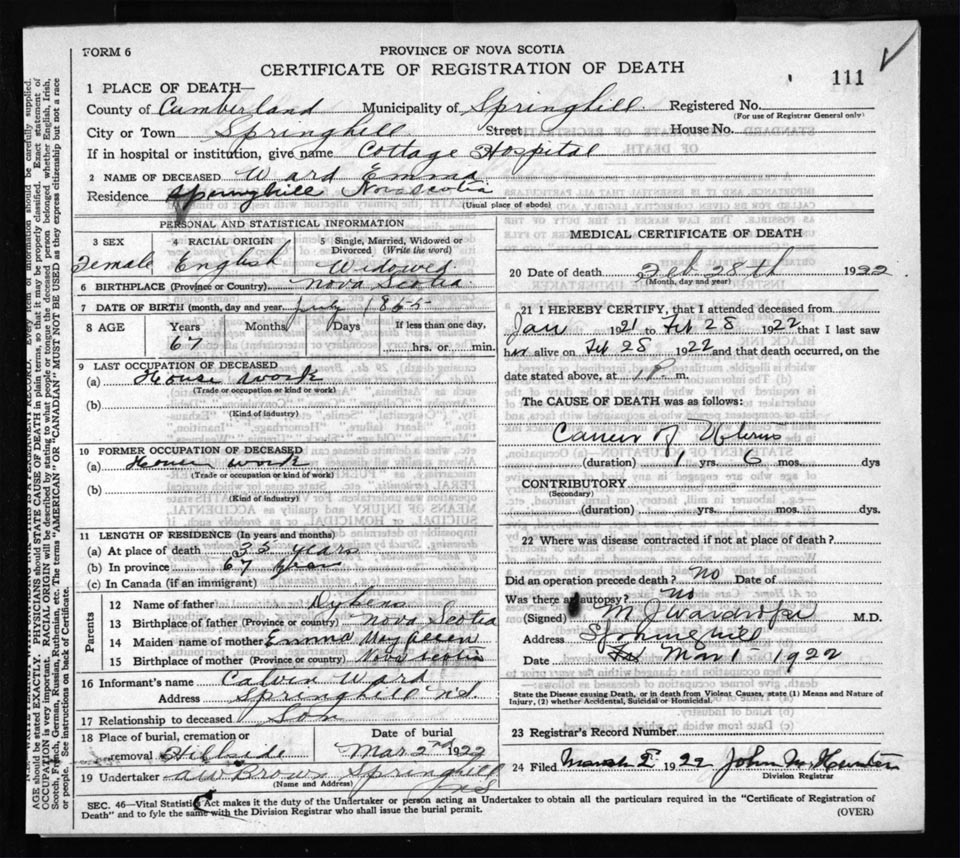 FORM 6
PROVINCE OF NOVA SCOTIA
CERTIFICATE OF REGISTRATION OF DEATH
111
1 PLACE OF DEATH—
County of Cumberland Municipality of Springhill Registered No.
(For use of Registrar General only)
City or Town Springhill Street House No.
If in hospital or institution, give name Cottage Hospital
2 NAME OF DECEASED Ward Emma
Residence Springhill Nova Scotia
(Usual place of abode)
PERSONAL AND STATISTICAL INFORMATION
3 SEX 4 RACIAL ORIGIN Single, Married, Widowed or Divorced (Write the word)
Female English Widowed
6 BIRTHPLACE (Province or Country) Nova Scotia
7 DATE OF BIRTH (month, day and year July 1855
8 AGE Years Months Days If less than one day,
67 hrs. or min.
9 LAST OCCUPATION OF DECEASED
(a) House work
(Trade or occupation or kind or work)
(b)
(Kind of industry)
10 FORMER OCCUPATION OF DECEASED
(a) House work
(Trade or occupation or kind of work)
(b)
(Kind of Industry)
11 LENGTH OF RESIDENCE (In years and months)
(a) At place of death 35 years
(b) In province 67 years
(c) In Canada (if an immigrant)
Parents
12 Name of father
13 Birthplace of father (Province or country) Nova Scotia
14 Maiden name of mother Emma
15 Birthplace of mother (Province or country) Nova Scotia
16 Informant's name Calvin Ward
Address Springhill N.S.
17 Relationship to deceased Son
18 Place of burial, cremation or Date of burial
removal Hillside Mar 2nd 1922
19 Undertaker A W Brown Springhill
(Name and Address) NS
MEDICAL CERTIFICATE OF DEATH
20 Date of death Feb 28th 1922
(Month, day and year)
21 I HEREBY CERTIFY, that I attended deceased from
Jan 1921 to Feb 28 1922 that I last saw
her alive on Feb 28 1922 and that death occurred, on the
date stated above, at 1 P. m.
The CAUSE OF DEATH was as follows:
Cancer of Uterus
(duration) 1 yrs. 6 mos. dys
CONTRIBUTORY
(Secondary)
(duration) yrs. mos. dys.
22 Where was disease contracted if not at place of death?
Did an operation precede death? No Date of
Was there an autopsy? No
(Signed) M J Wardrope M.D.
Address Springhill
Date Mar 1 1922
State the Disease causing Death, or in death from Violent Causes, state (1) Means and Nature of
Injury, (2) whether Accidental, Suicidal or Homicidal.
23 Registrar's Record Number
24 Filed March 1922 John
Division Registrar
SEC. 46—Vital Statistics Act makes it the duty of the Undertaker or person acting as Undertaker to obtain all the particulars required in the "Certificate of Registration of
Death" and to fyle the same with the Division Registrar who shall issue the burial permit.
(OVER)
AGE should be stated EXACTLY. PHYSICIANS should STATE CAUSE OF DEATH in plain terms, so that it may be properly classified. Exact statement of
OCCUPATION is very important. RACIAL ORIGIN will be described by stating to what people or tongue the deceased person belonged whether English, Irish,
Scotch, French, German, Russian, Ruthenian, etc. The terms "AMERICAN" OR "CANADIAN" MUST NOT BE USED as they express citizenship but not a race
or people. See instructions on back of Certificate.